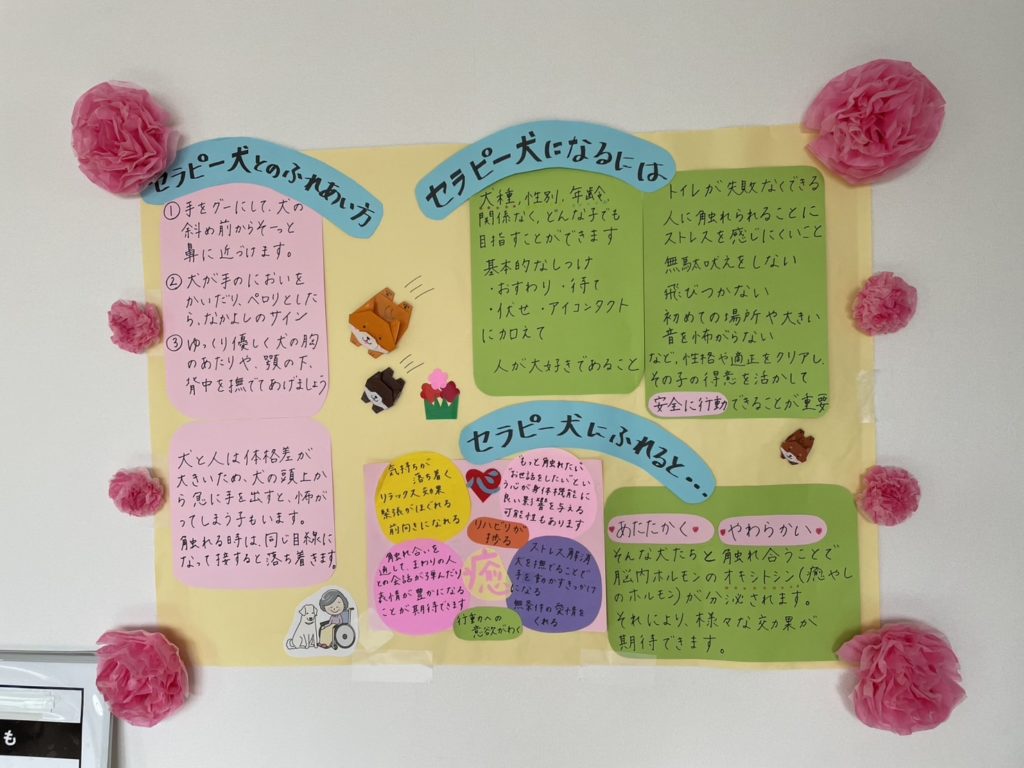 セラピー犬とのふれあい方
①手をグーにして、犬の
斜め前からそーっと
鼻に近づけます。
②犬が手のにおいを
かいだり、ペロリとした
ら、なかよしのサイン
③ゆっくり優しく犬の胸
のあたりや、顎の下、
背中を撫でてあげましょう
犬と人は体格差が
大きいため、犬の頭上か
ら急に手を出すと、怖が
ってしまう子もいます。
触れる時は、同じ目線に
なって接すると落ち着きます。
セラピー犬になるには
犬種,性別,年齢,
関係なく、どんな子でも
目指すことができます
基本的なしつけ
・おすわり・待て
・伏せ・アイコンタクト
に加えて
人が大好きであること
トイレが失敗なくできる
人に触れられることに
ストレスを感じにくいこと
無駄吠えをしない
飛びつかない
初めての場所や大きい
音を怖がらない
など、性格や適正をクリアし、
その子の得意を活かして
安全に行動できることが重要
セラピー犬にふれると...
気持ちが
落ち着く
リラックス効果
緊張がほぐれる
前向きになれる
心
"もっと触れたい"
"お世話をしたい"とい
う心が身体機能に
良い影響を与える
可能性もあります
リハビリが
捗る
触れ合いを
通して、まわりの人
との会話が弾んだり
表情が豊かになる
ことが期待できます
癒
ストレス解消
犬を撫でることで
手を動かすきっかけ
になる
無条件の愛情を
くれる
行動への
意欲がわく
あたたかく
やわらかい
そんな犬たちと触れ合うことで
脳内ホルモンのオキシトシン(癒やし
のホルモン)が分泌されます。
それにより、様々な効果が
期待できます。
も